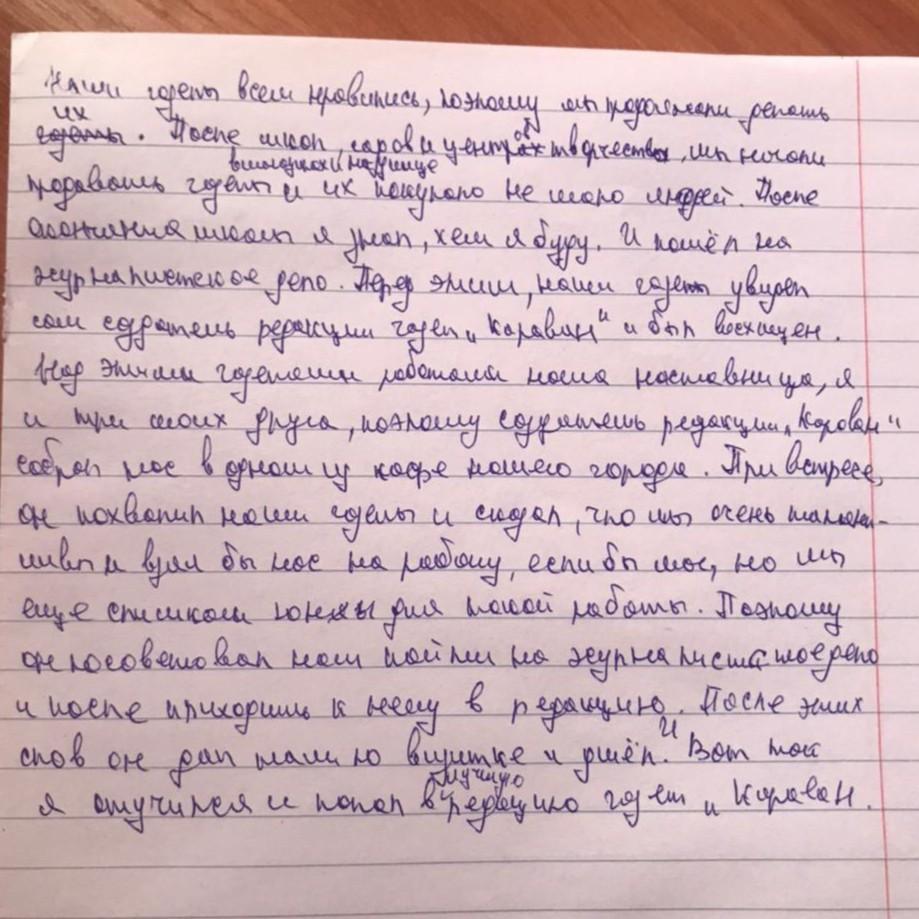 Наши газеты всем нравились, поэтому мы продолжали делать
их
газеты. После школ, садов и центрах творчества, мы начали
выходили на улице
продавать газеты и их покупало не мало людей. После
окончания школы я знал, кем я буду. И пошёл на
журналистское дело. Перед этим, наши газеты увидел
сам создатель редакции газет „Караван" и был восхищен.
Над этими газетами работали наша наставница, я
и три моих друга, поэтому создатель редакции „Караван"
собрал нас в одном из кафе нашего города. При встрече,
он похвалил наши газеты и сказал, что мы очень талант-
ливы и взял бы нас на работу, если бы мог, но мы
еще слишком юны для такой работы. Поэтому
он посоветовал нам пойти на журналистское дело
и после приходить к нему в редакцию. После этих
слов он дал нам визитке и ушёл. И Вот так
лучшую
я отучился и попал в редакцию газет „Караван.